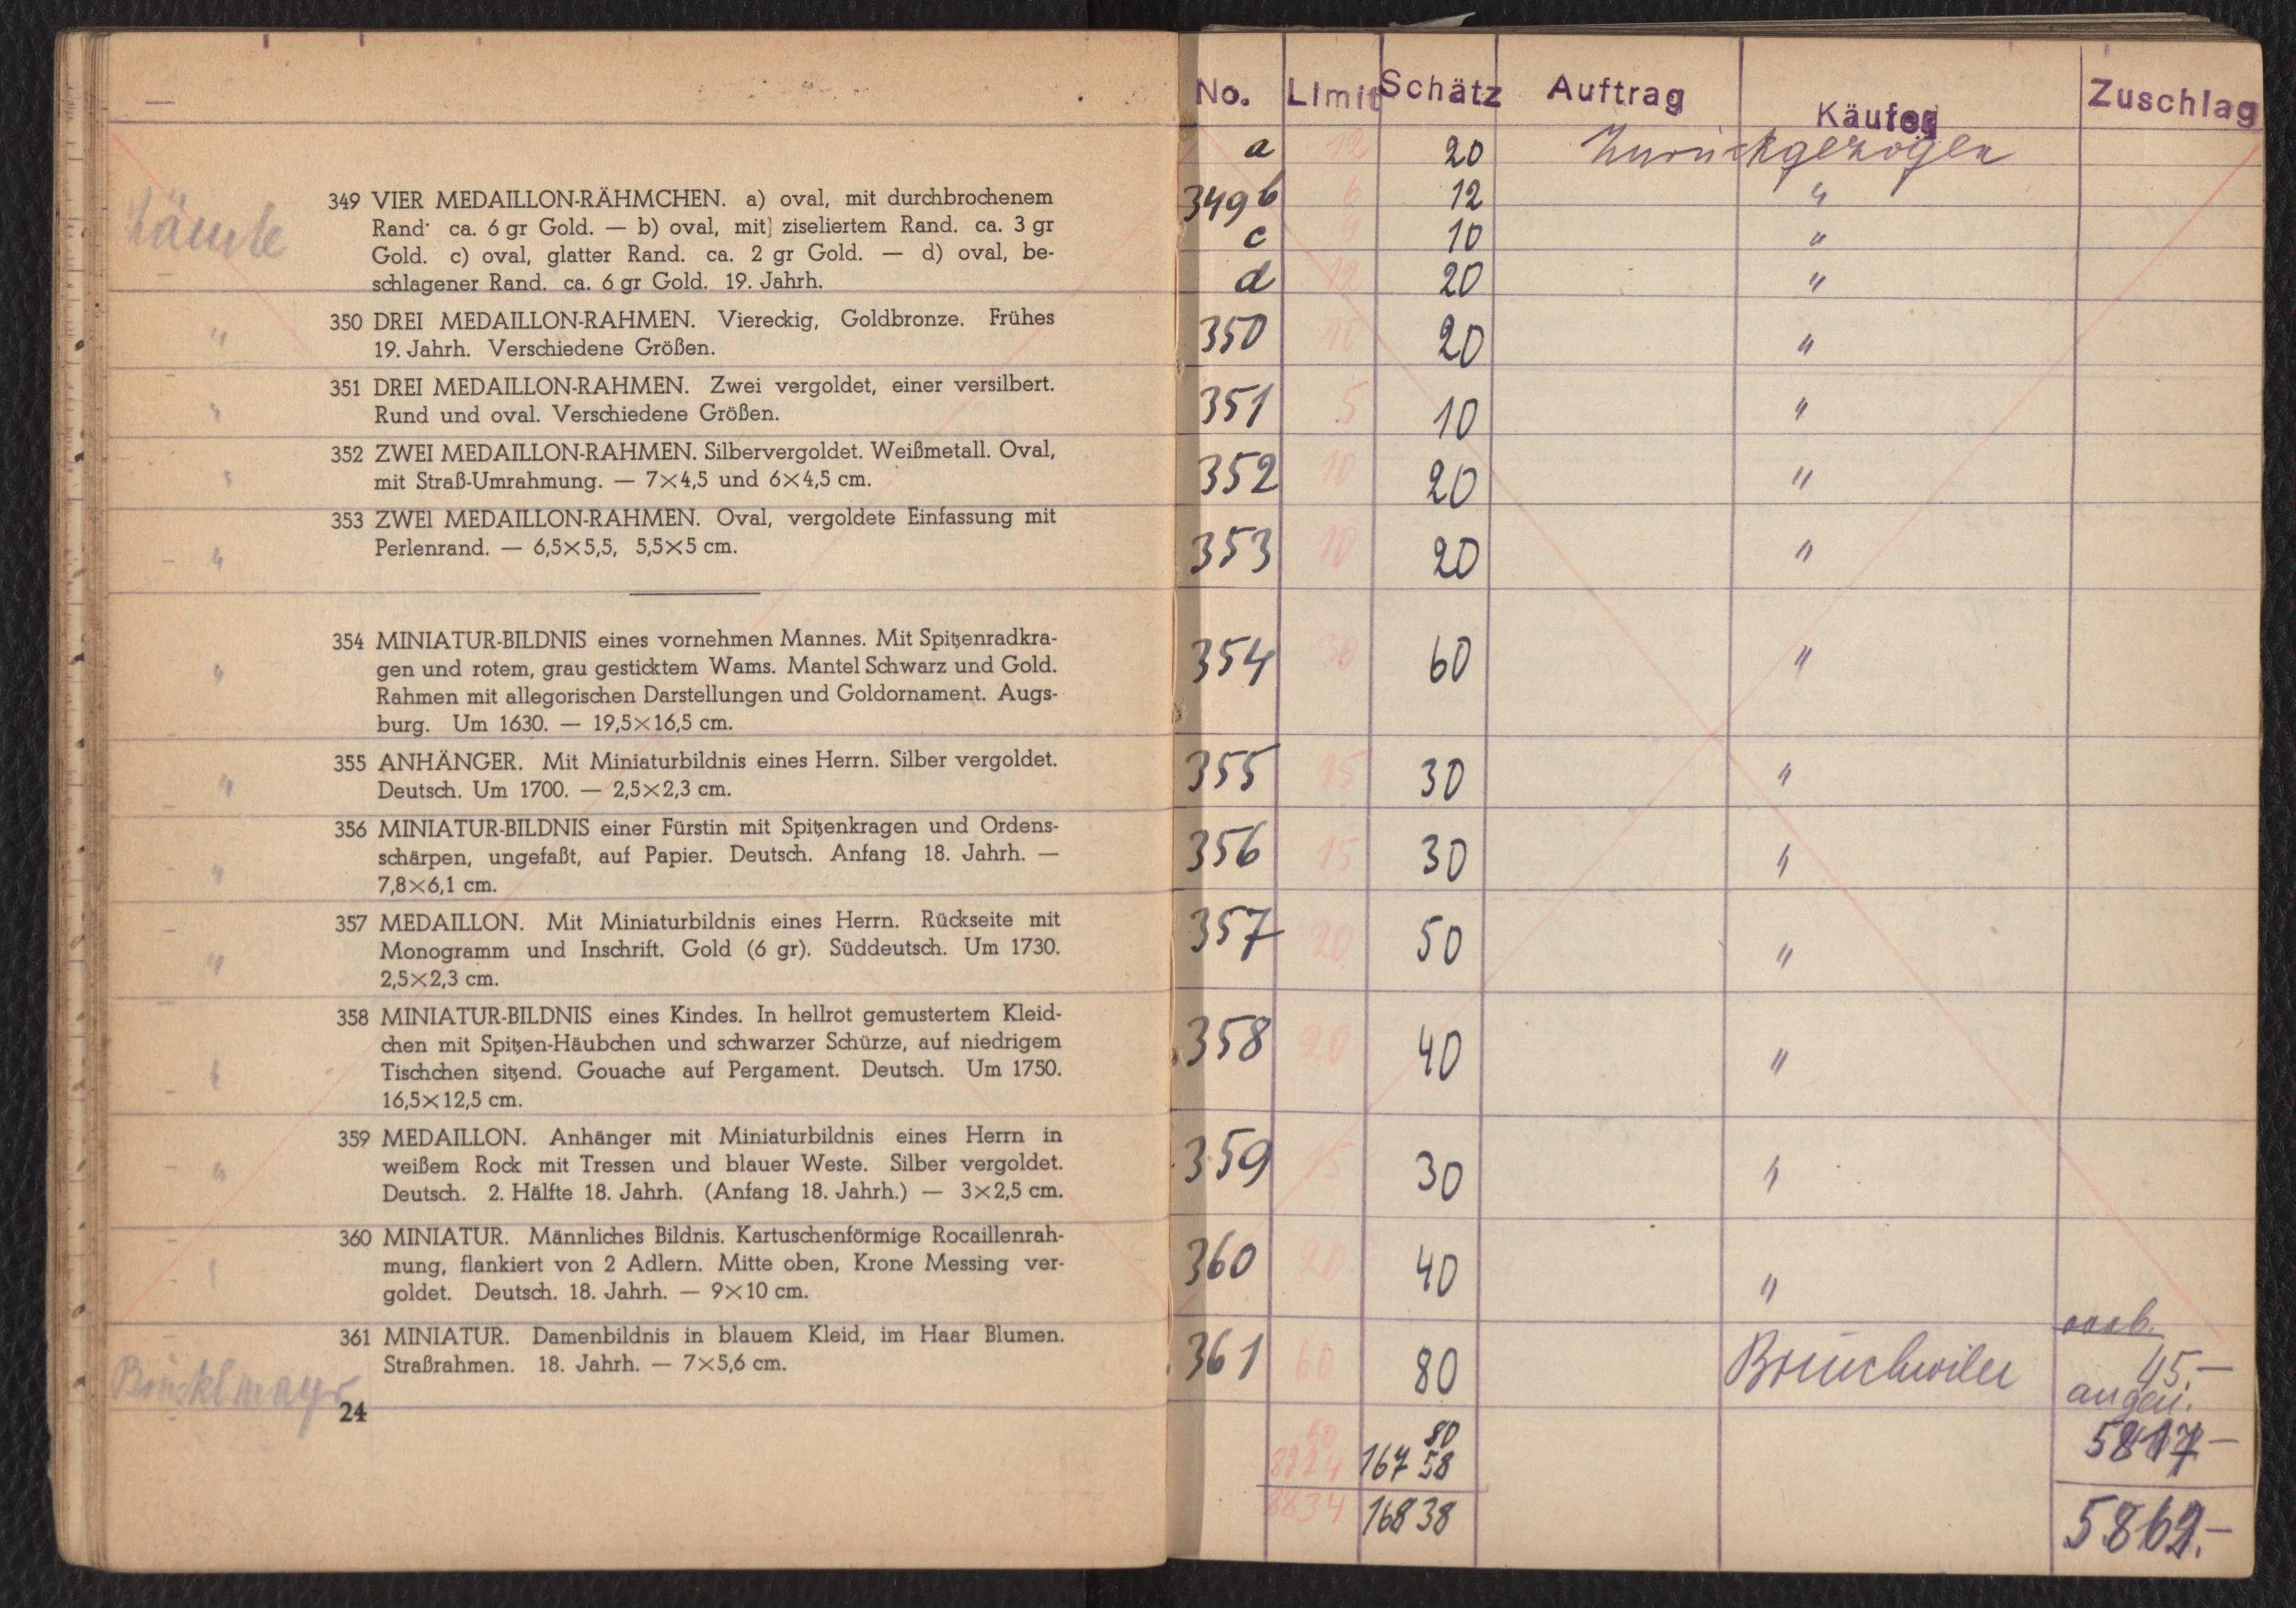 349 VIER MEDAILLON-RÄHMCHEN. a) oval, mit durchbrochenem
Rand· ca. 6 gr Gold. — b) oval, mit] ziseliertem Rand. ca. 3 gr
Gold. c) oval, glatter Rand. ca. 2 gr Gold. — d) oval, be-
schlagener Rand. ca. 6 gr Gold. 19. Jahrh.
" 350 DREI MEDAILLON-RAHMEN. Viereckig, Goldbronze. Frühes
19. Jahrh. Verschiedene Größen.
" 351 DREI MEDAILLON-RAHMEN. Zwei vergoldet, einer versilbert.
Rund und oval. Verschiedene Größen.
" 352 ZWEI MEDAILLON-RAHMEN. Silbervergoldet. Weißmetall. Oval,
mit Straß-Umrahmung. — 7×4,5 und 6×4,5 cm.
" 353 ZWEI MEDAILLON-RAHMEN. Oval, vergoldete Einfassung mit
Perlenrand. — 6,5×5,5, 5,5×5 cm.
" 354 MINIATUR-BILDNIS eines vornehmen Mannes. Mit Spitzenradkra-
gen und rotem, grau gesticktem Wams. Mantel Schwarz und Gold.
Rahmen mit allegorischen Darstellungen und Goldornament. Augs-
burg. Um 1630. — 19,5×16,5 cm.
" 355 ANHÄNGER. Mit Miniaturbildnis eines Herrn. Silber vergoldet.
Deutsch. Um 1700. — 2,5×2,3 cm.
" 356 MINIATUR-BILDNIS einer Fürstin mit Spitzenkragen und Ordens-
schärpen, ungefaßt, auf Papier. Deutsch. Anfang 18. Jahrh. —
7,8×6,1 cm.
" 357 MEDAILLON. Mit Miniaturbildnis eines Herrn. Rückseite mit
Monogramm und Inschrift. Gold (6 gr). Süddeutsch. Um 1730.
2,5×2,3 cm.
" 358 MINIATUR-BILDNIS eines Kindes. In hellrot gemustertem Kleid-
chen mit Spitzen-Häubchen und schwarzer Schürze, auf niedrigem
Tischchen sitzend. Gouache auf Pergament. Deutsch. Um 1750.
16,5×12,5 cm.
" 359 MEDAILLON. Anhänger mit Miniaturbildnis eines Herrn in
weißem Rock mit Tressen und blauer Weste. Silber vergoldet.
Deutsch. 2. Hälfte 18. Jahrh. (Anfang 18. Jahrh.) — 3×2,5 cm.
" 360 MINIATUR. Männliches Bildnis. Kartuschenförmige Rocaillenrah-
mung, flankiert von 2 Adlern. Mitte oben, Krone Messing ver-
goldet. Deutsch. 18. Jahrh. — 9×10 cm.
361 MINIATUR. Damenbildnis in blauem Kleid, im Haar Blumen.
Straßrahmen. 18. Jahrh. — 7×5,6 cm.
Brücklmayr
24
No. Limit Schätz Auftrag Käufer Zuschlag
a 12 20 Zurückgezogen
349 b 6 12 "
c 10 "
d 12 20 "
350 10 20 "
351 5 10 "
352 10 20 "
353 10 20 "
354 30 60 "
355 15 30 "
356 15 30 "
357 20 50 "
358 20 40 "
359 15 30 "
360 20 40 "
361 60 80 45.—
60 80
167 58 5817—
8834 168 38 5862.—